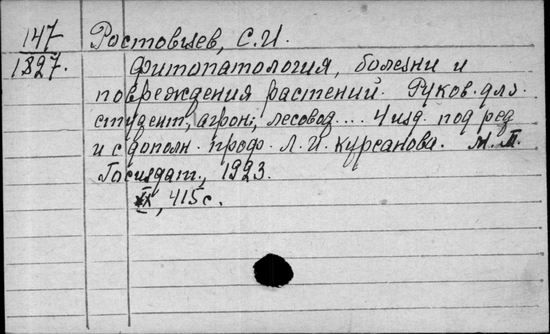 147 Ростовцев, С.И.
1827. Фитопатология, болезни и
повреждения растений. Руков. для
студент., агрон., лесовод.... 4 изд. под ред
и с дополн. проф. Л.И. Курсанова. М.П.
Госиздат., 1923.
IX, 415 с.